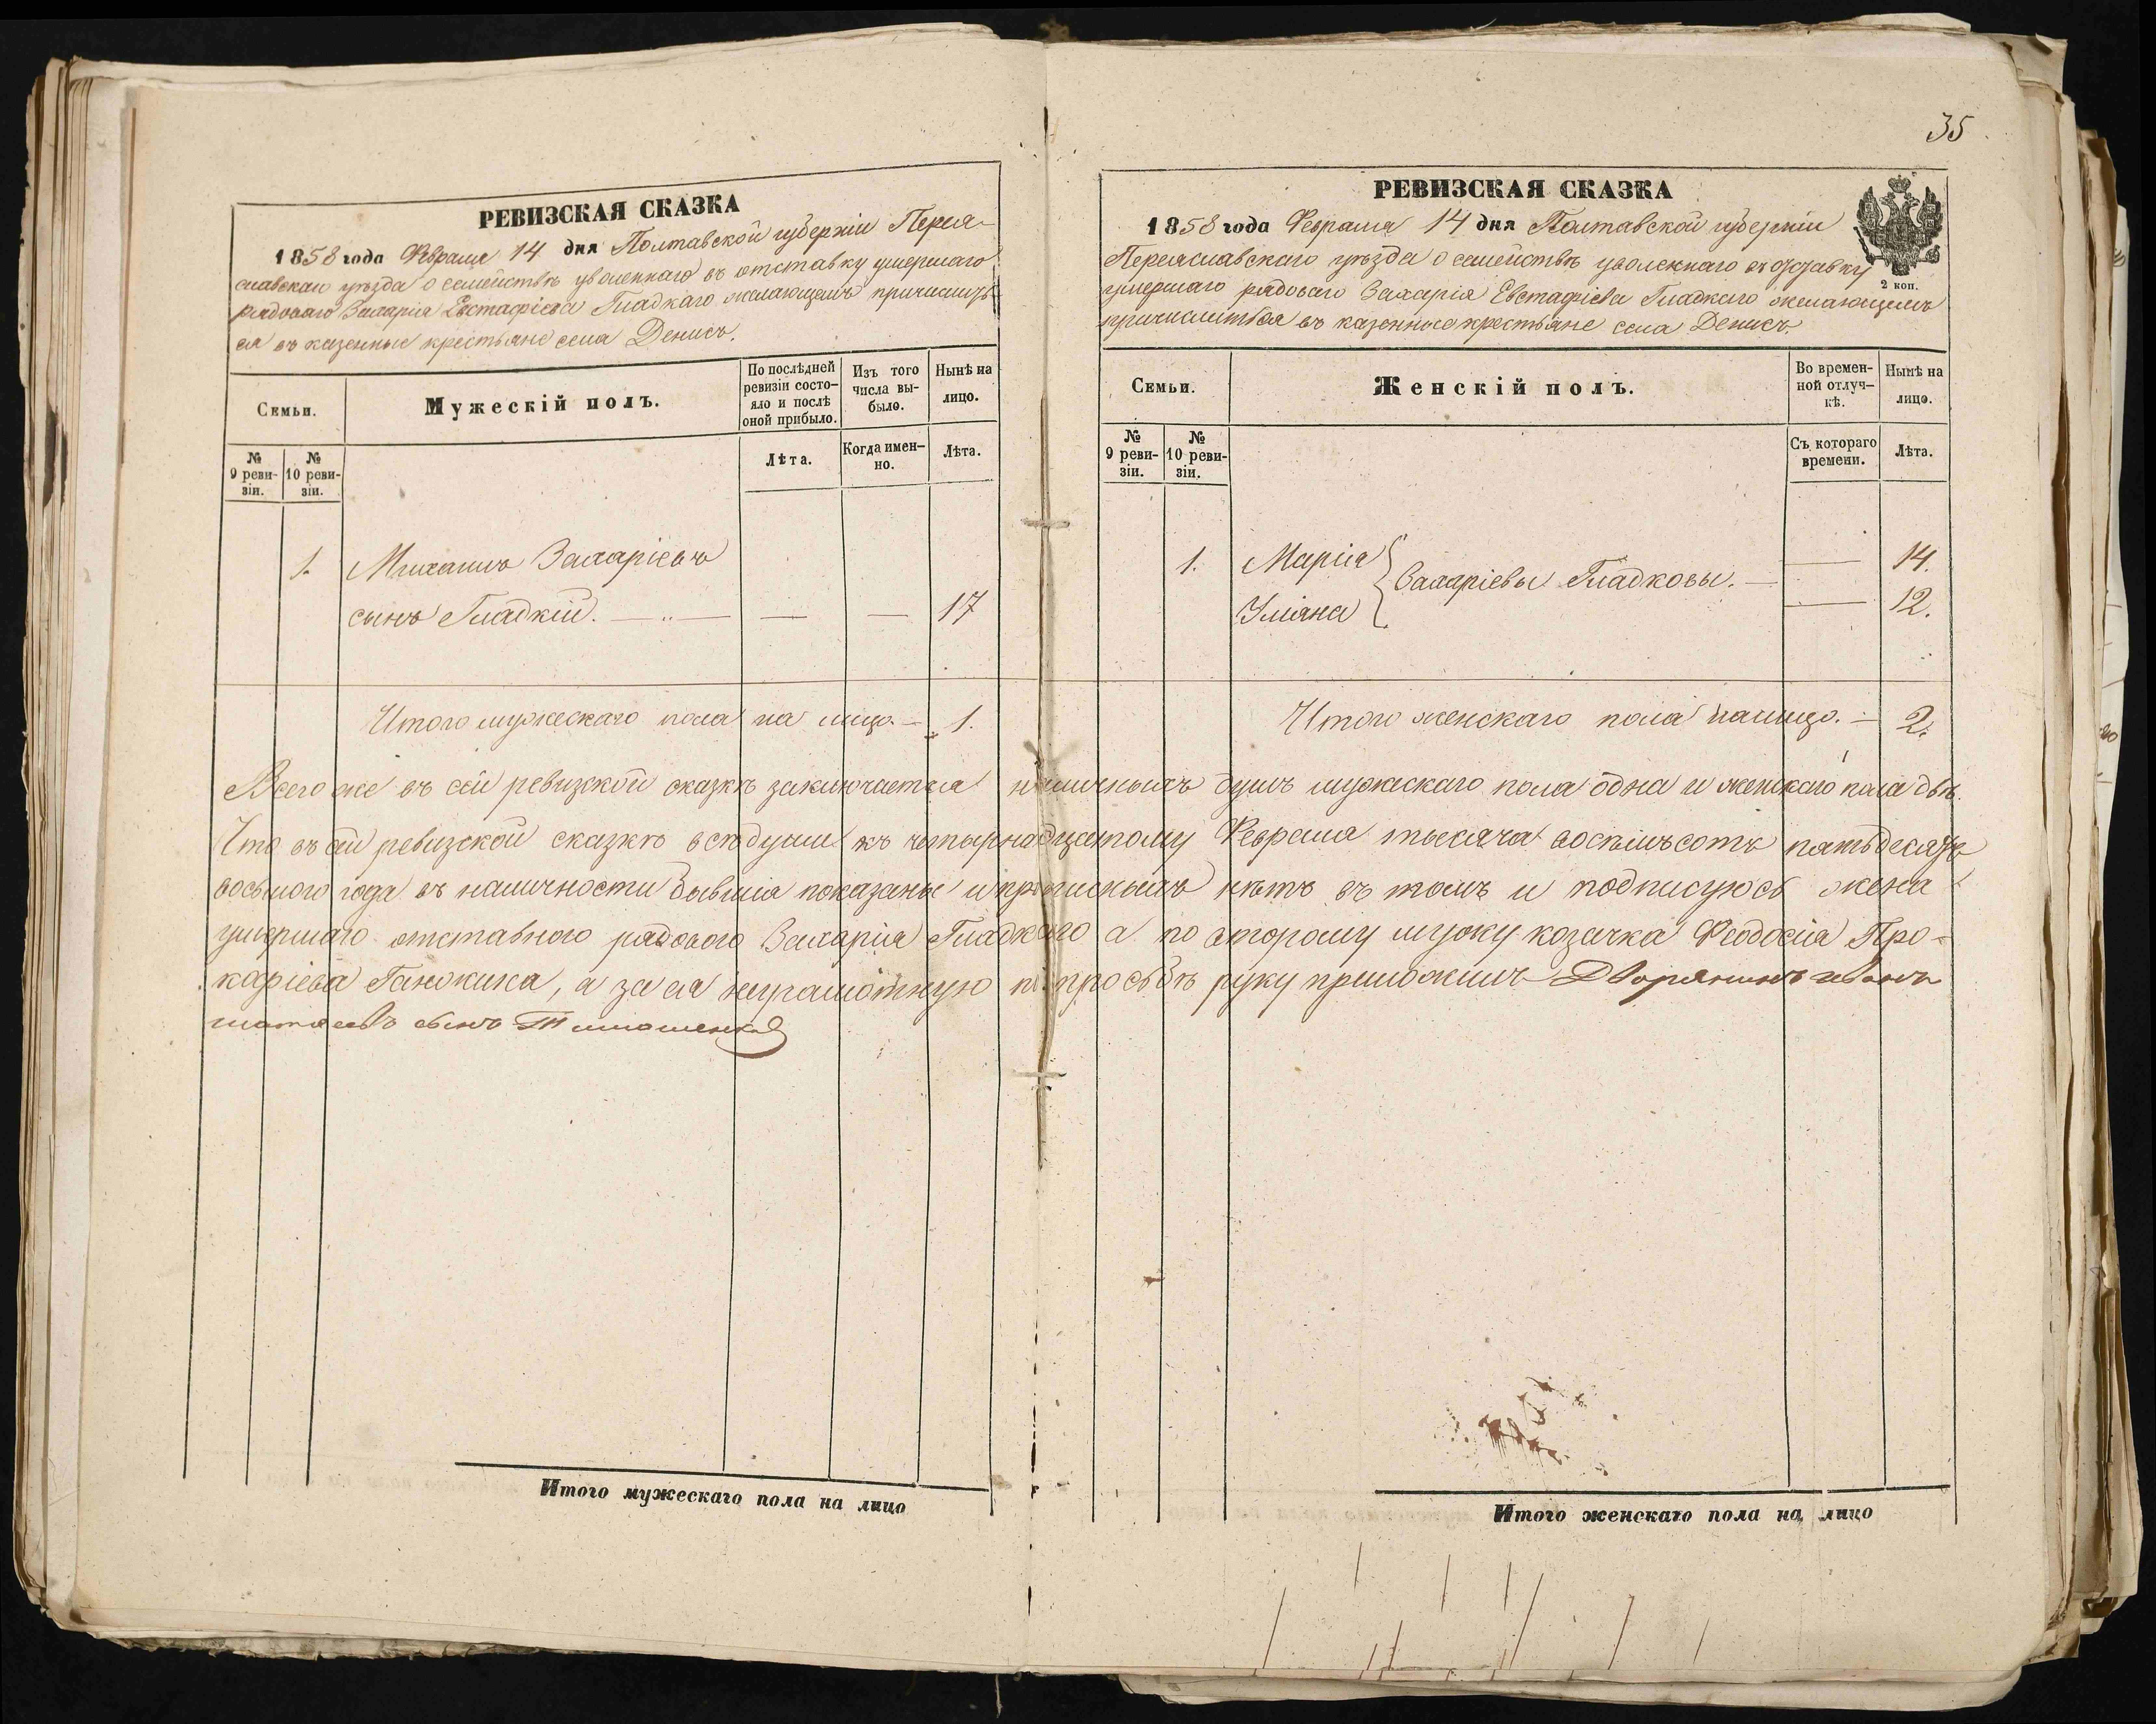 35
РЕВИЗСКАЯ СКАЗКА
1858 года Февраля 14 дня Полтавской губерніи Перея-
славскаго уѣзда о семействѣ уволеннаго въ отставку умершаго
рядоваго Захарія Евстафіева Гладкаго желающемъ причислить-
ся въ казенные крестьяне села Денисъ.
Семьи.
Мужескій полъ.
По послѣдней ревизіи состо-
яло и послѣ оной прибыло.
Изъ того числа вы-
было.
Нынѣ на лицо.
№ 9 реви-
зіи.
№ 10 реви-
зіи.
Лѣта.
Когда имен-
но.
Лѣта.
1. Михаилъ Захаріевъ
сынъ Гладкій. — — — 17
Итого мужескаго пола на лицо. — 1.
РЕВИЗСКАЯ СКАЗКА
1858 года Февраля 14 дня Полтавской губерніи
Переяславскаго уѣзда о семействѣ уволеннаго въ отставку
2 коп.
умершаго рядоваго Захарія Евстафіева Гладкаго желающемъ
причислиться въ казенные крестьяне села Денисъ
Семьи.
Женскій полъ.
Во времен-
ной отлуч-
кѣ.
Нынѣ на лицо.
№ 9 реви-
зіи.
№ 10 реви-
зіи.
Съ котораго времени.
Лѣта.
1. Марія — 14.
Захаріевы Гладковы. —
Уліяна — 12.
Итого женскаго пола налицо. — 2.
Всего же въ сей ревизской сказкѣ заключается наличныхъ душъ мужескаго пола одна и женскаго пола двѣ.
Что въ сей ревизской сказкѣ всѣ души къ четырнадцатому Февраля тысяча восемьсотъ пятьдесятъ
восьмого года въ наличности бывшія показаны и прописныхъ нѣтъ въ томъ и подписуюсь жена
умершаго отставного рядового Захарія Гладкого а по второму мужу козачка Феодосія Про-
кофіева, а за ея неграмотную по просьбѣ руку приложилъ Дворянинъ Иванъ
сынъ Тимошенко
Итого мужескаго пола на лицо
Итого женскаго пола на лицо